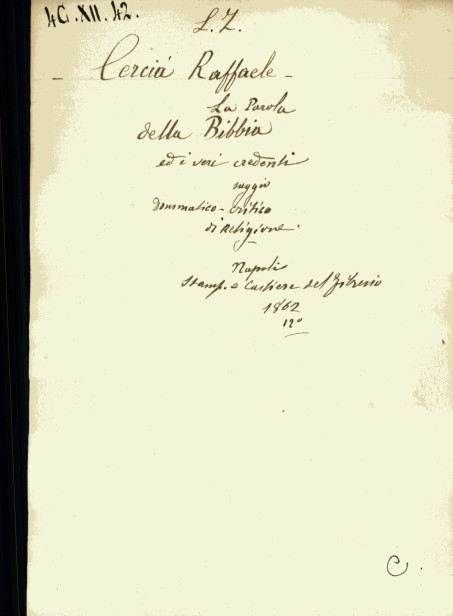 4C.XII.42.
L.Z.
– Cerciá Raffaele –
La Parola
della Bibbia
ed i veri credenti
saggio
dommatico-critico
di religione
Napoli
Stamp. e Cartiere del Fibreno
1862
12º
C.